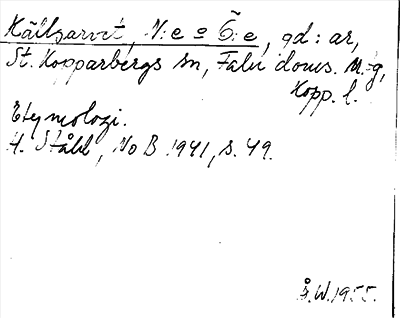 Källsarvet, N:e o Ö:e, gd:ar,
St. Kopparbergs sn, Falu doms.
Kopp. l.
Etymologi.
H. Ståhl, NoB 1941, s. 49.
Å.W. 1955.